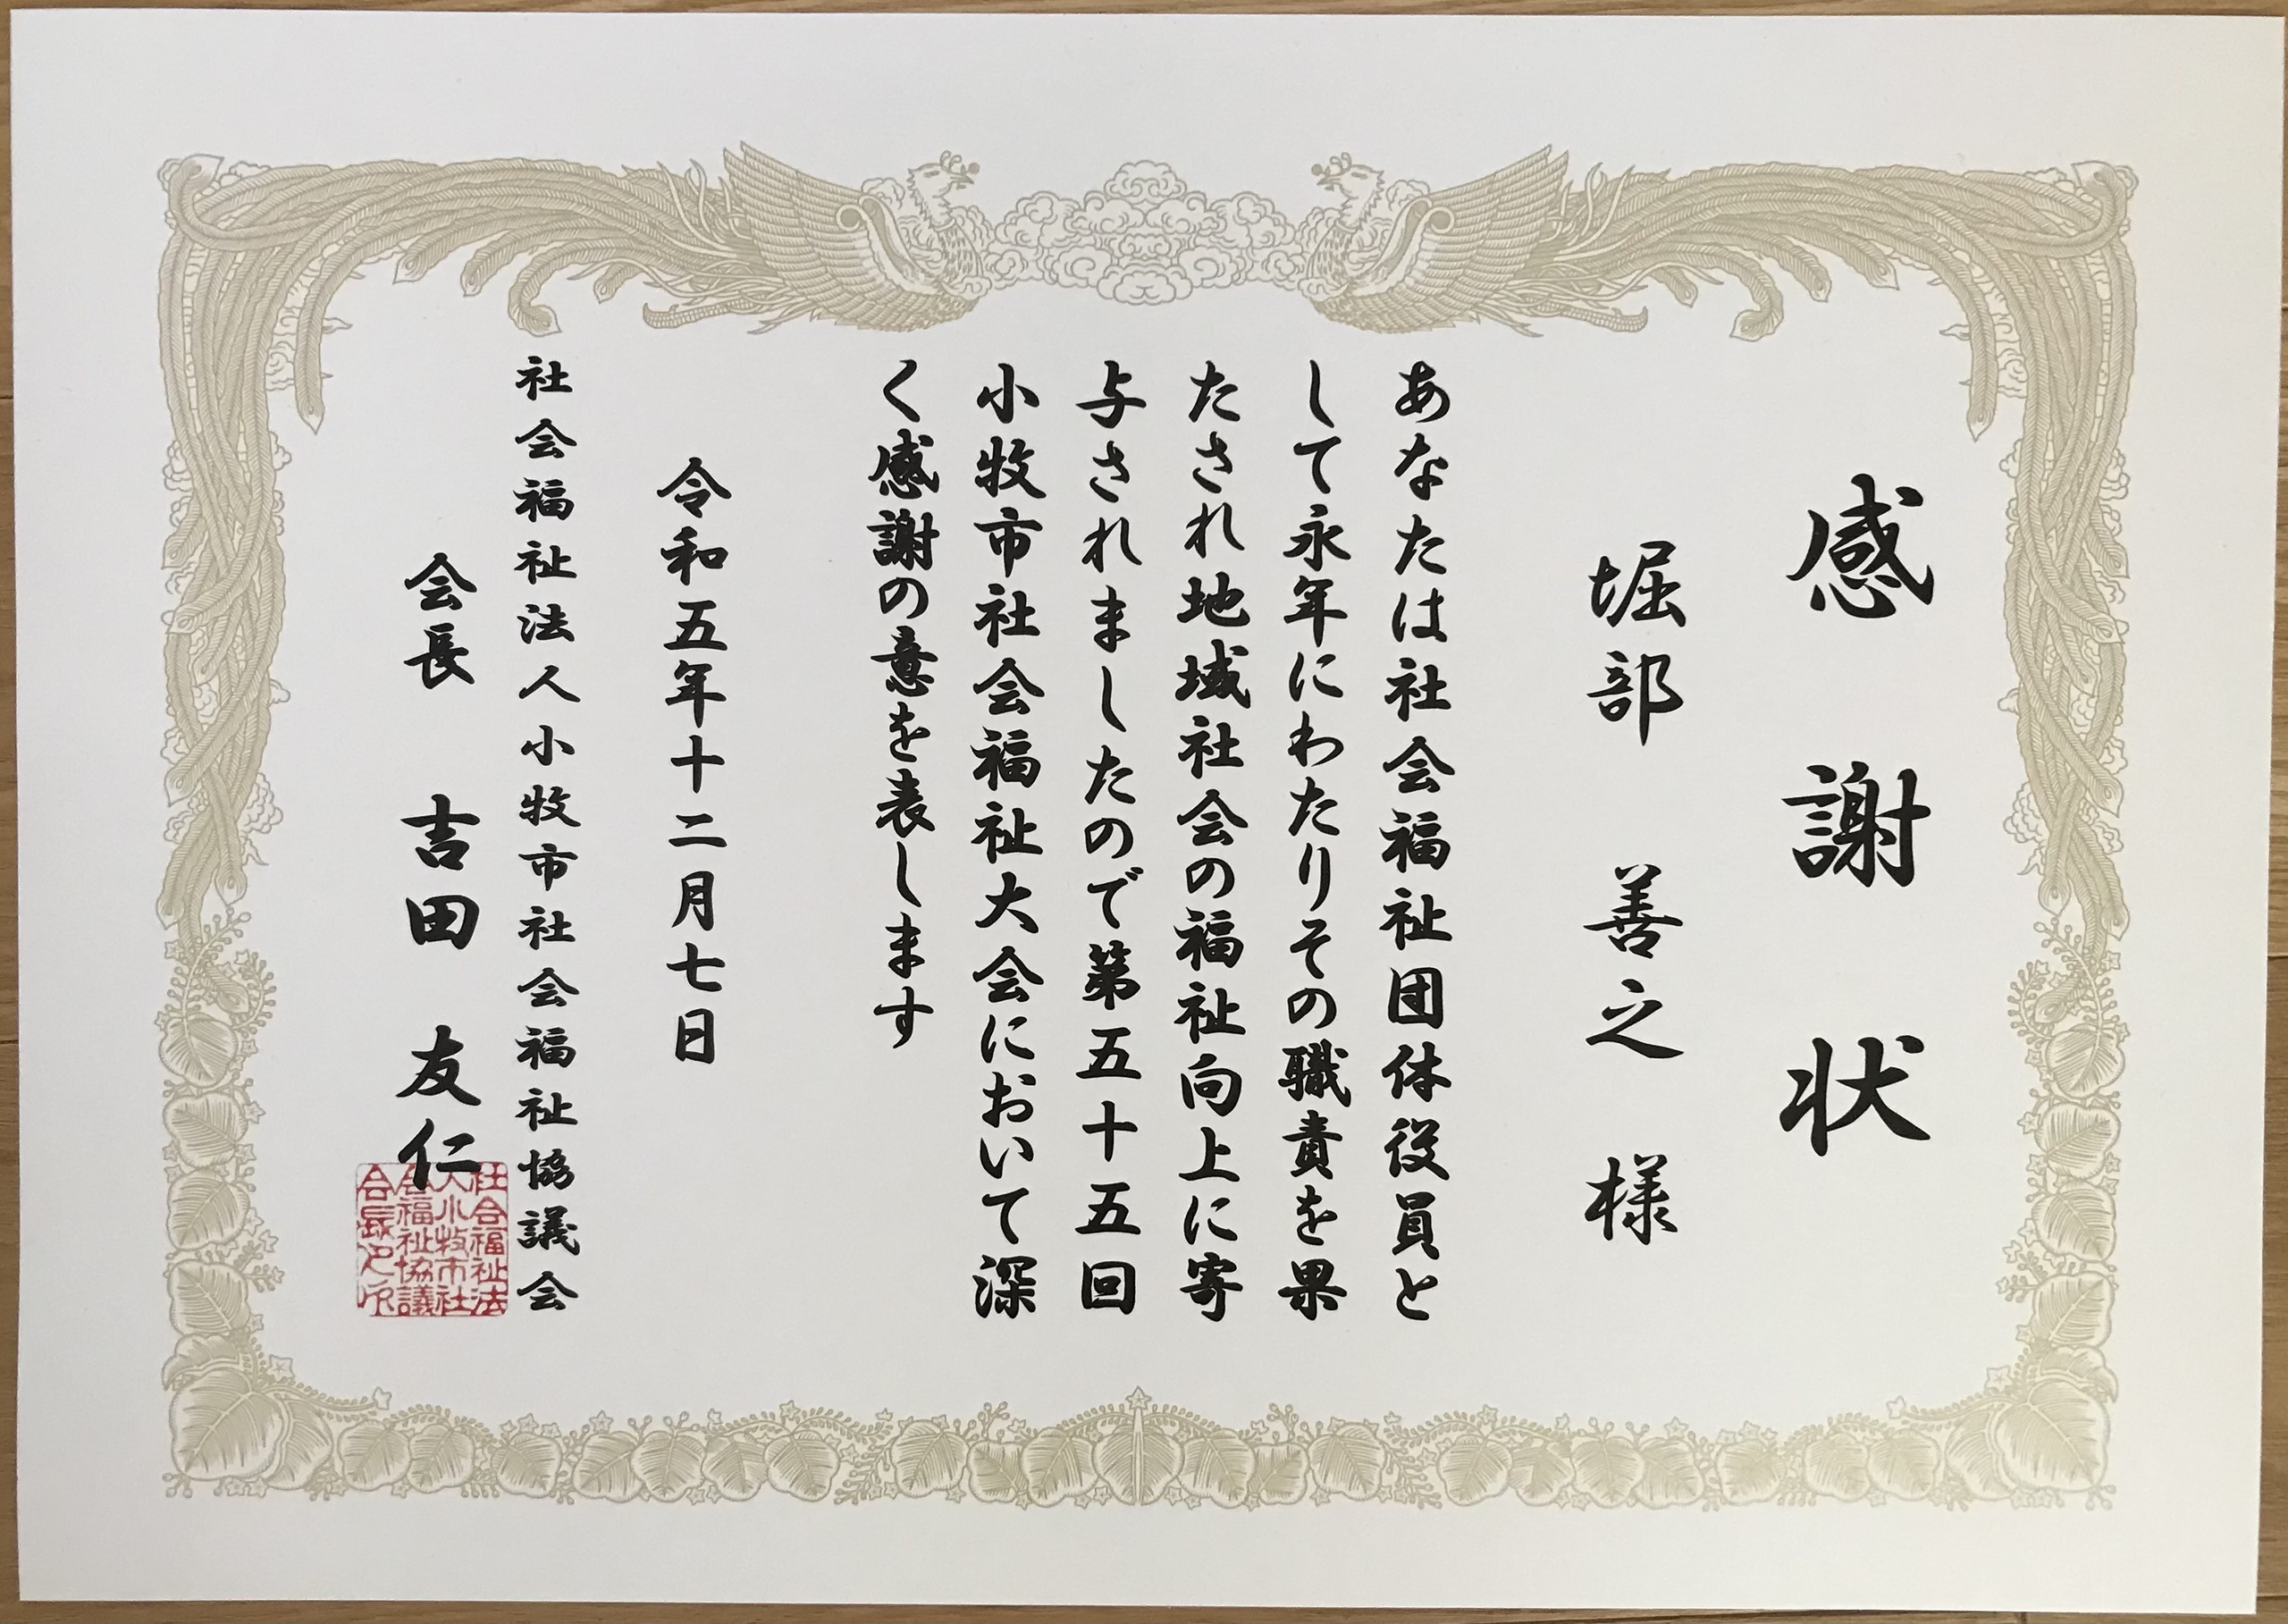 感謝状
堀部 善之 様
あなたは社会福祉団体役員と
して永年にわたりその職責を果
たされ地域社会の福祉向上に寄
与されましたので第五十五回
小牧市社会福祉大会において深
く感謝の意を表します
令和五年十二月七日
社会福祉法人小牧市社会福祉協議会
会長 吉田 友仁
社会福祉法
人小牧市社
会福祉協議
会長之印